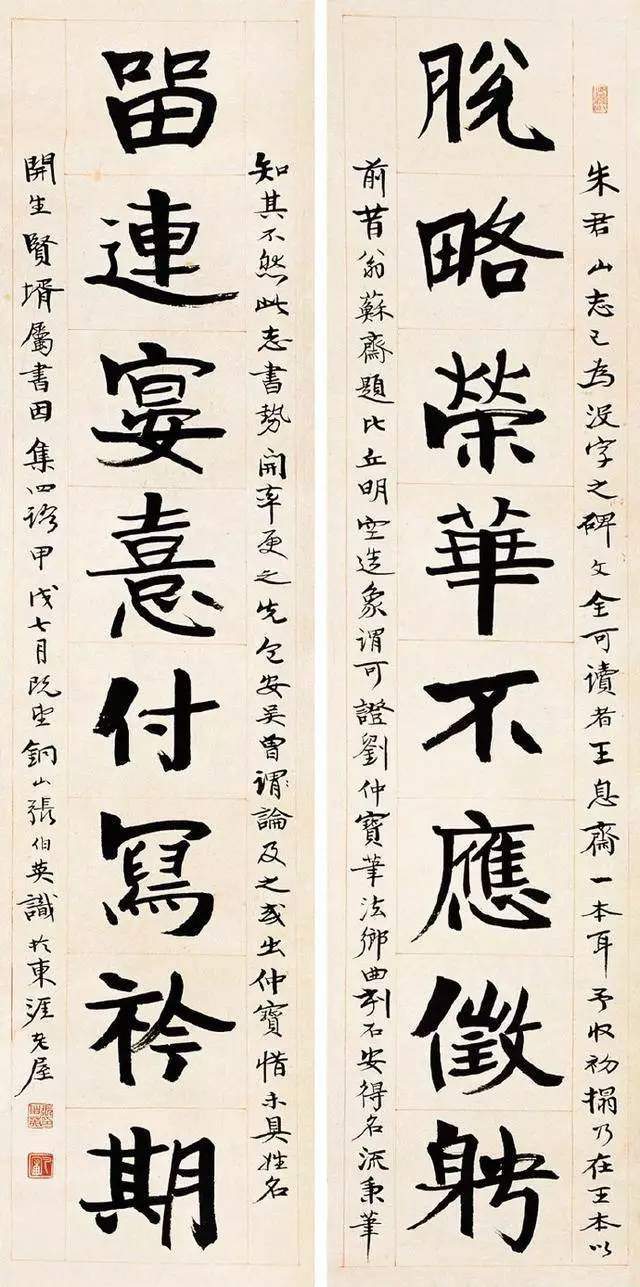 朱君山志已為沒字之碑文全可讀者王息齋一本耳予收初搨乃在王本以
脫略榮華不應徵聘
前昔翁蘇齋題比丘明空造象謂可證劉仲寶筆法鄉曲刻石安得名流秉筆
知其不然此志書勢開率更之先包安吳曾謂論及之或出仲寶惜未具姓名
留連宴憙付寫衿期
開生賢壻屬書因集四語甲戌七月既望銅山張伯英識於東涯老屋